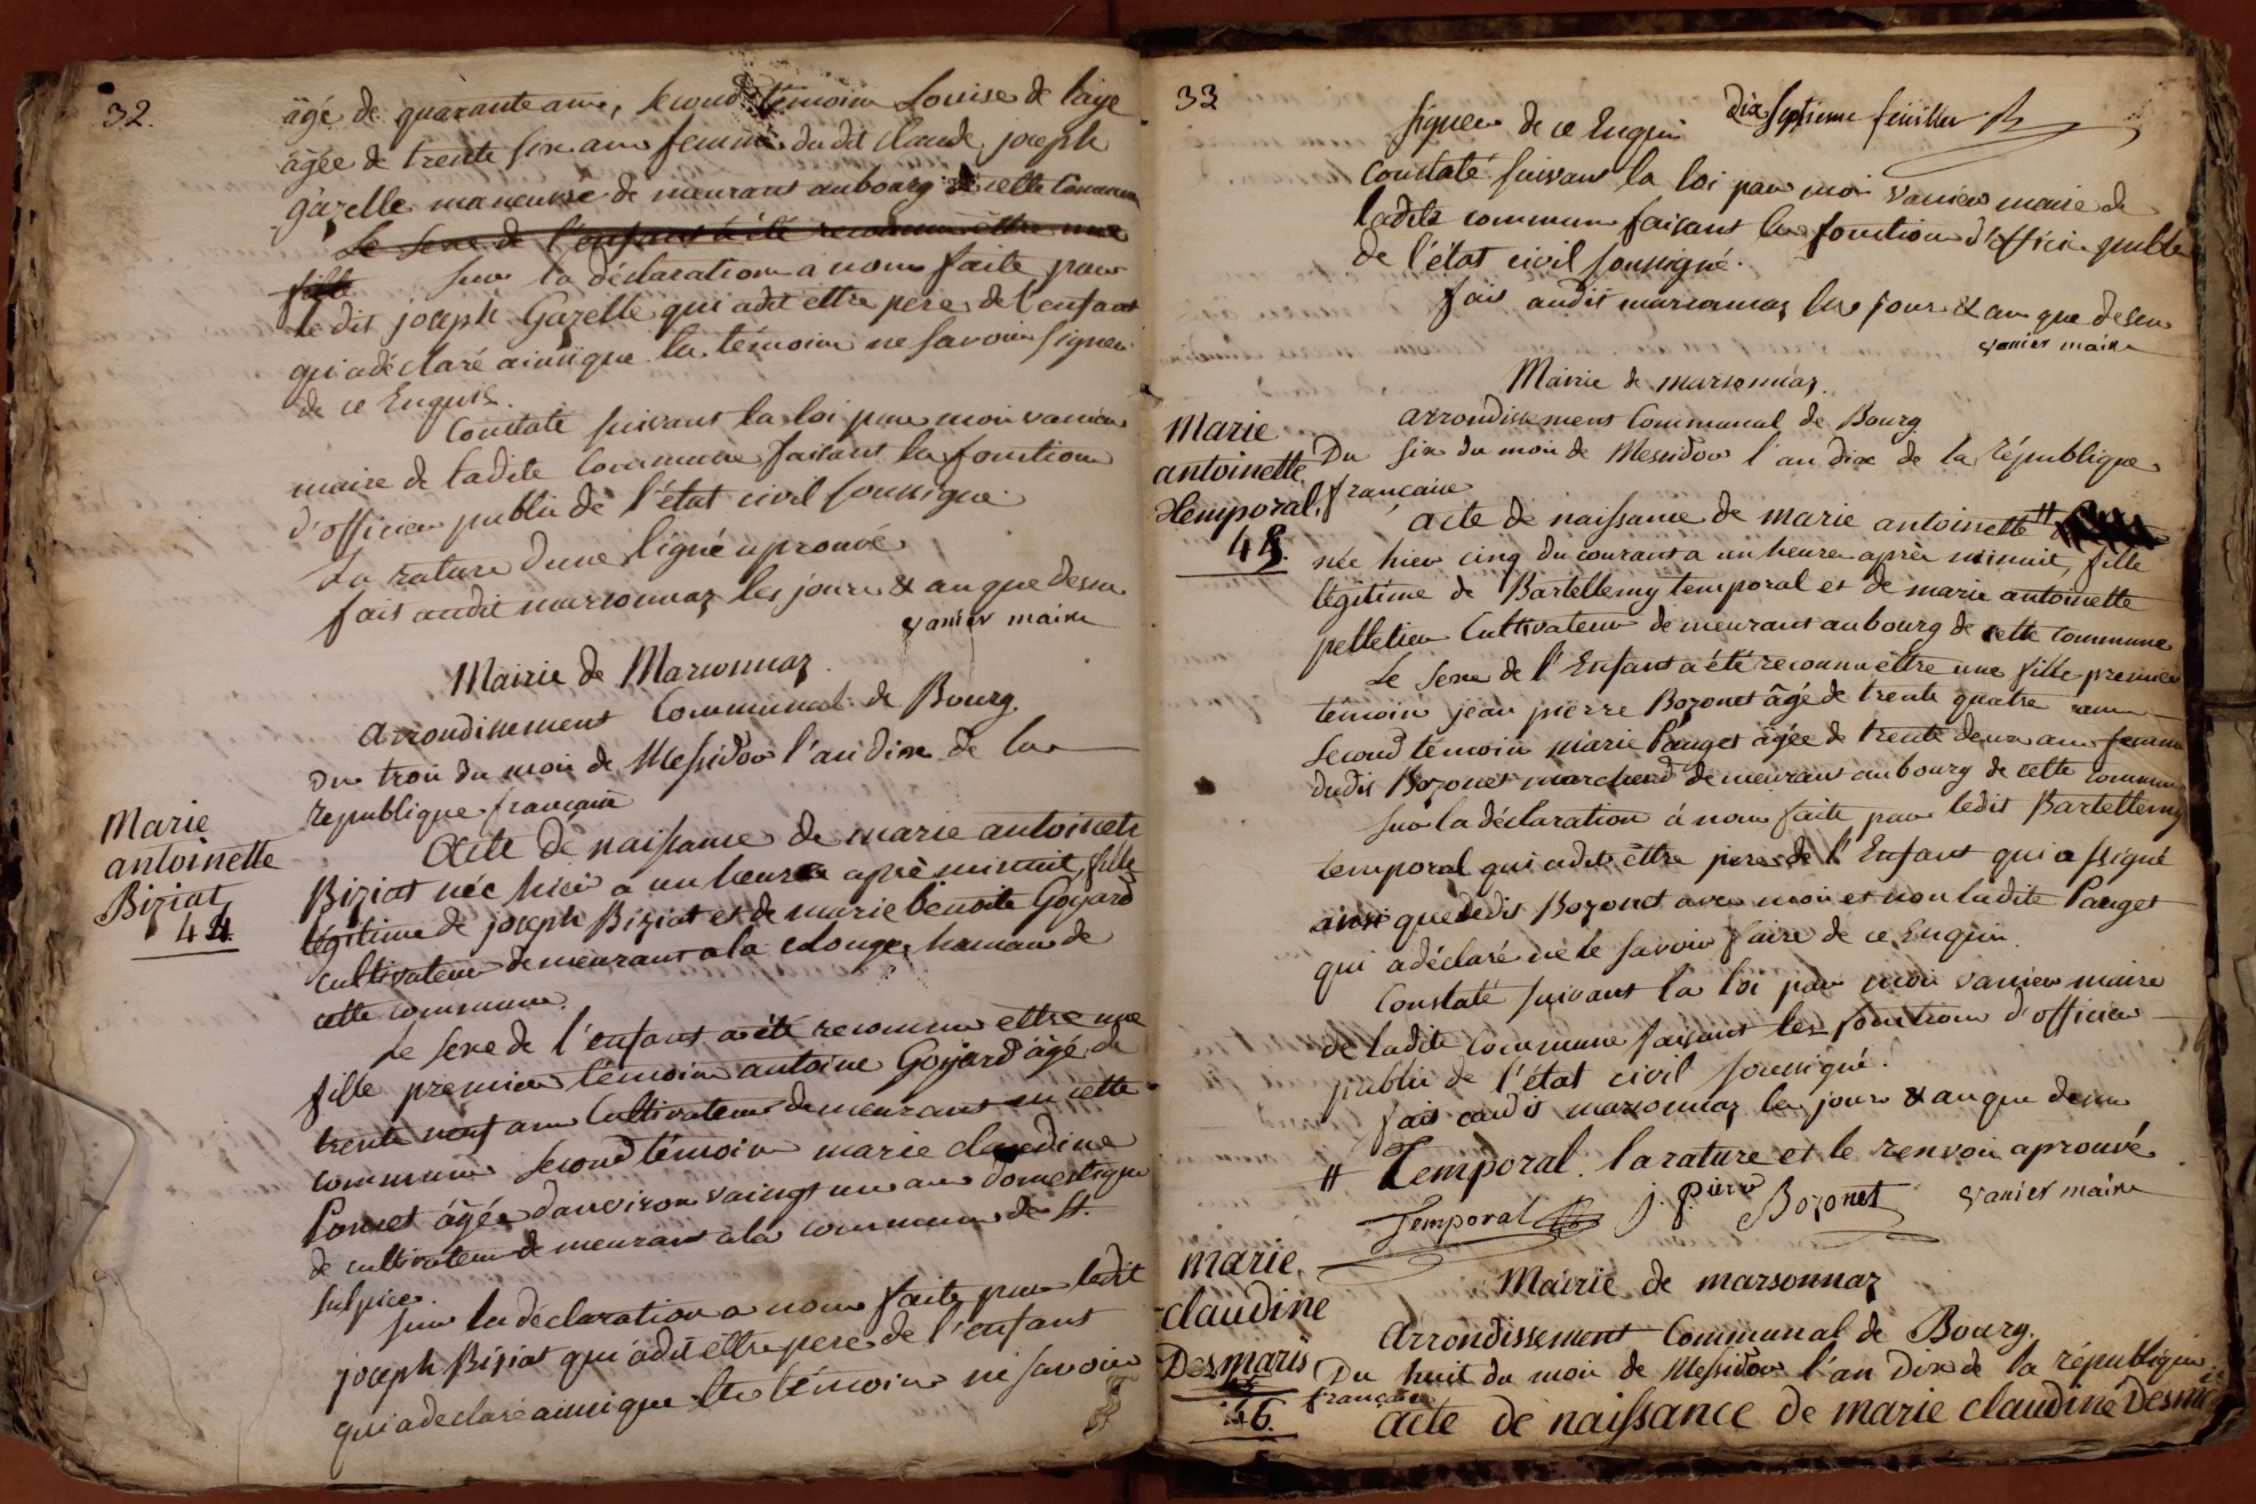 32.
âgé de quarante ans, second témoin Louise de laye
âgée de trente six ans femme du dit Claude joseph
Gazelle maneuvre demeurant au bourg de cette Commune
Le Sexe de l'enfant à été reconnu ettre une
fille Sur la déclaration a nous faite par
le dit joseph Gazelle qui adit ettre pere de l'enfant
qui adéclaré ainsique les témoins ne savoir signer
de ce Enquis.
Constaté suivant la loi par moi vanier
maire de ladite Commune faisant les fonctions
d'officier public de l'état civil soussigné
La rature d'une ligne aprouvé
fait audit marsonnaz les jours & an que dessus
vanier maire
Mairie de Marsonnaz.
arrondissement Communal de Bourg.
Du trois du mois de Messidor l'an dix de la
republique française
Marie
antoinette
Biziat
44.
Acte de naissance de marie antoinette
Biziat née hier a un heure après minuit, fille
légitime de joseph Biziat et de marie benoite Goyard
cultivateur demeurant a la Longe hameau de
cette commune.
Le Sexe de l'enfant a été reconnu ettre une
fille premier témoin antoine Goyard âgé de
trente neuf ans Cultivateur demeurant en cette
commune second témoin marie claudine
Ponset âgée d'anviron vaingt un ans domestique
de cultivateur demeurant a la commune de St.
Sulpice.
Sur la déclaration a nous faite par ledit
joseph Biziat qui adit ettre pere de l'enfant
qui adeclaré ainsique les témoins ne savoir
33
dix septieme feuillet
signer de ce Enquis
Constaté suivant la loi par moi vanier maire de
ladite commune faisant les fonctions d'officier public
de l'état civil soussigné.
fait audit marsonnaz les jours & an que dessus
vanier maire
Mairie de marsonnaz.
arrondissement Communal de Bourg
Marie
antoinette
Temporal.
45.
Du six du mois de Messidor l'an dix de la république
française
acte de naissance de marie antoinette #
née hier cinq du courant a un heure après minuit, fille
légitime de Bartellemy temporal et de marie antoinette
pelletier Cultivateur demeurant au bourg de cette commune
Le Sexe de l'Enfant a été reconnu ettre une fille premier
témoin jean pierre Bozonet âgé de trente quatre ans
second témoin marie Pauget âgée de trente deux ans femme
dudit Bozonet marchand demeurant au bourg de cette commune
Sur la déclaration à nous faite par ledit Bartellemy
temporal qui adit ettre pere de l'Enfant qui a signé
ainsi queledit Bozonet avec moi et non ladite Pauget
qui adéclaré ne le savoir faire de ce Enquis.
Constaté suivant la loi par moi vanier maire
de ladite Commune faisant les fonctions d'officier
public de l'état civil soussigné.
fait audit marsonnaz les jours & an que dessus
# Temporal. la rature et le renvoi aprouvé
Temporal J. Pierre Bozonet vanier maire
Mairie de marsonnaz
Arrondissement Communal de Bourg.
marie
claudine
Desmaris
46.
Du huit du mois de Messidor l'an Dix de la république
française
acte de naissance de marie claudine